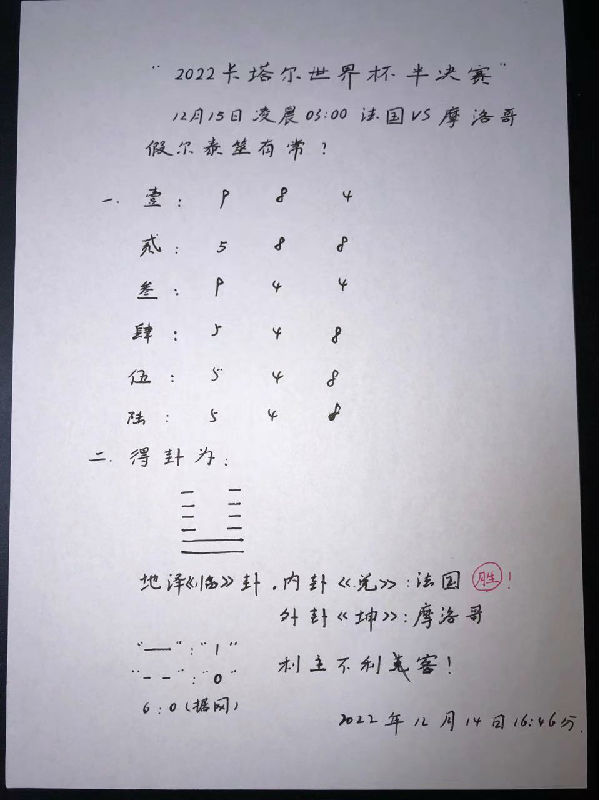 "2022卡塔尔世界杯半决赛"
12月15日凌晨03:00 法国VS摩洛哥
假尔泰筮有常?
一. 壹: 9 8 4
贰: 5 8 8
叁: 9 4 4
肆: 5 4 8
伍: 5 4 8
陆: 5 4 8
二. 得卦为:
地泽《临》卦. 内卦《兑》: 法国 胜!
外卦《坤》: 摩洛哥
"—":"1"
"- -":"0"
利主不利客!
6:0(据网)
2022年12月14日16:46分.